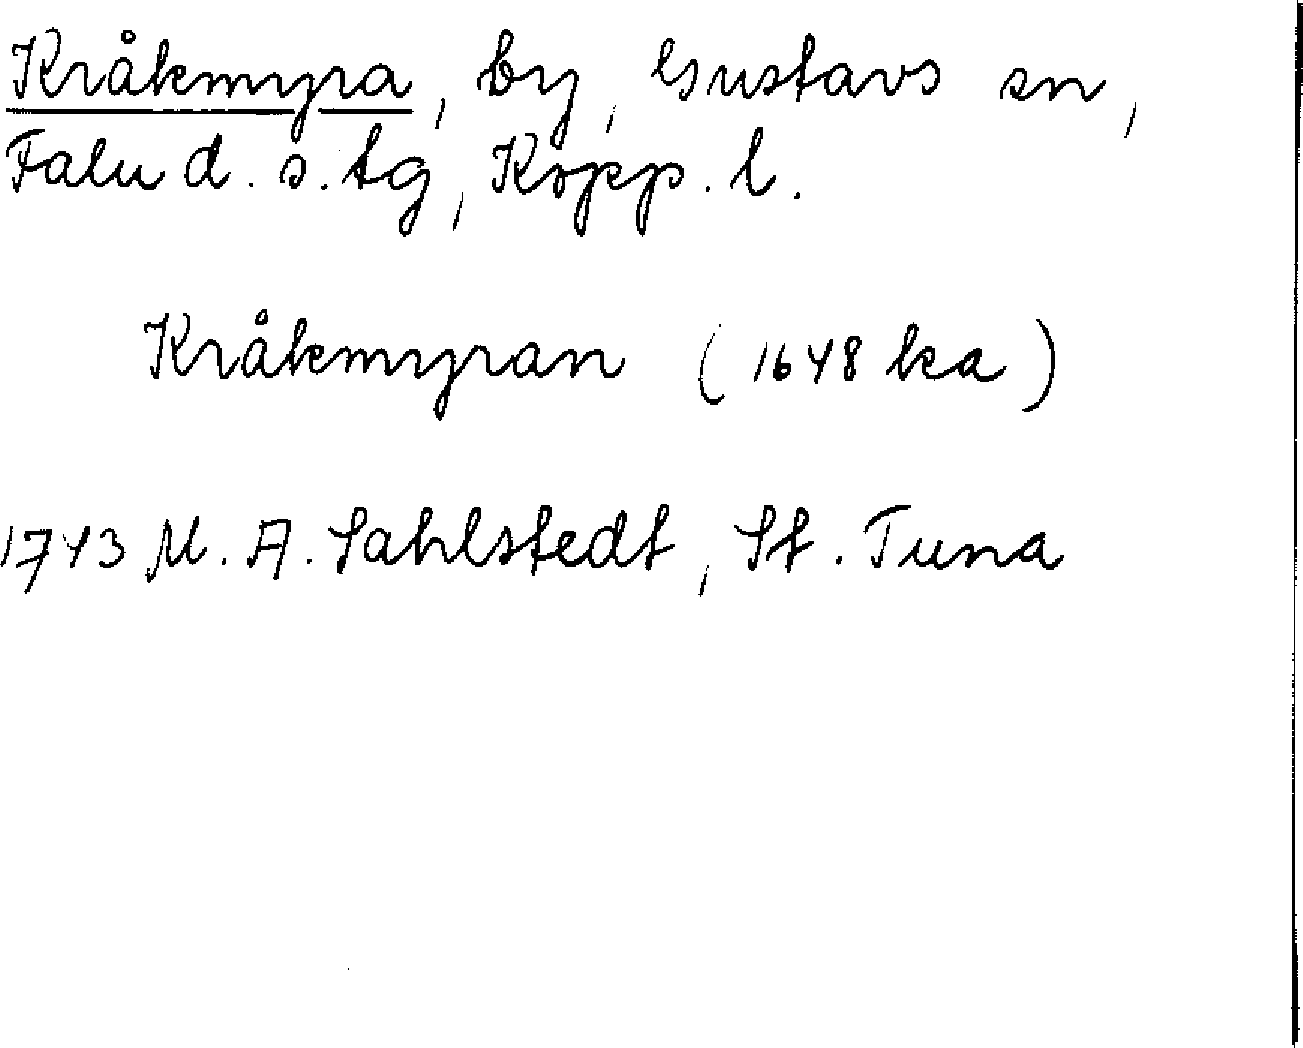 Kråkmyra, by, Gustavs sn,
Falu d. s. tg, Kopp. l.
Kråkmyran (1648 ka)
1743 M. A. Sahlstedt, St. Tuna